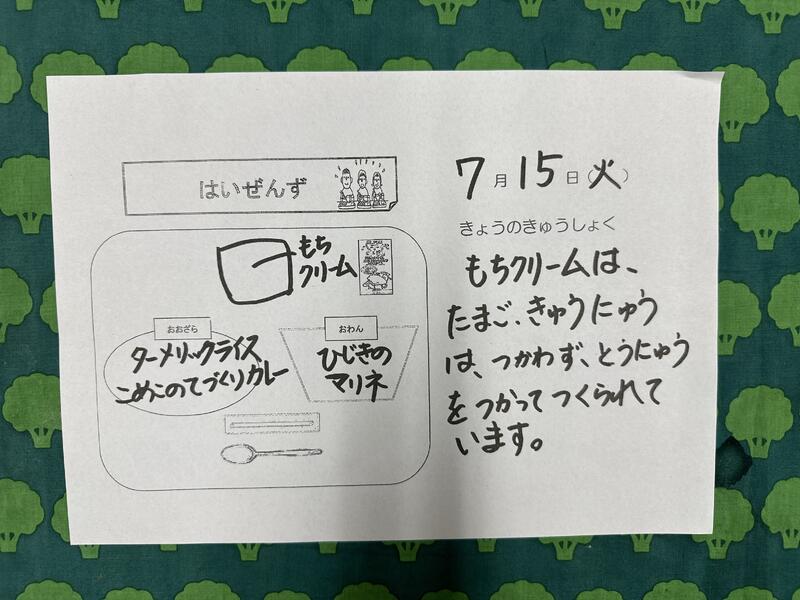 はいぜんず
もち
クリーム
おおざら
ターメリックライス
こめこのてづくりカレー
おわん
ひじきの
マリネ
7月15日(火)
きょうのきゅうしょく
もちクリームは、
たまご、きゅうにゅう
は、つかわず、とうにゅう
をつかってつくられて
います。